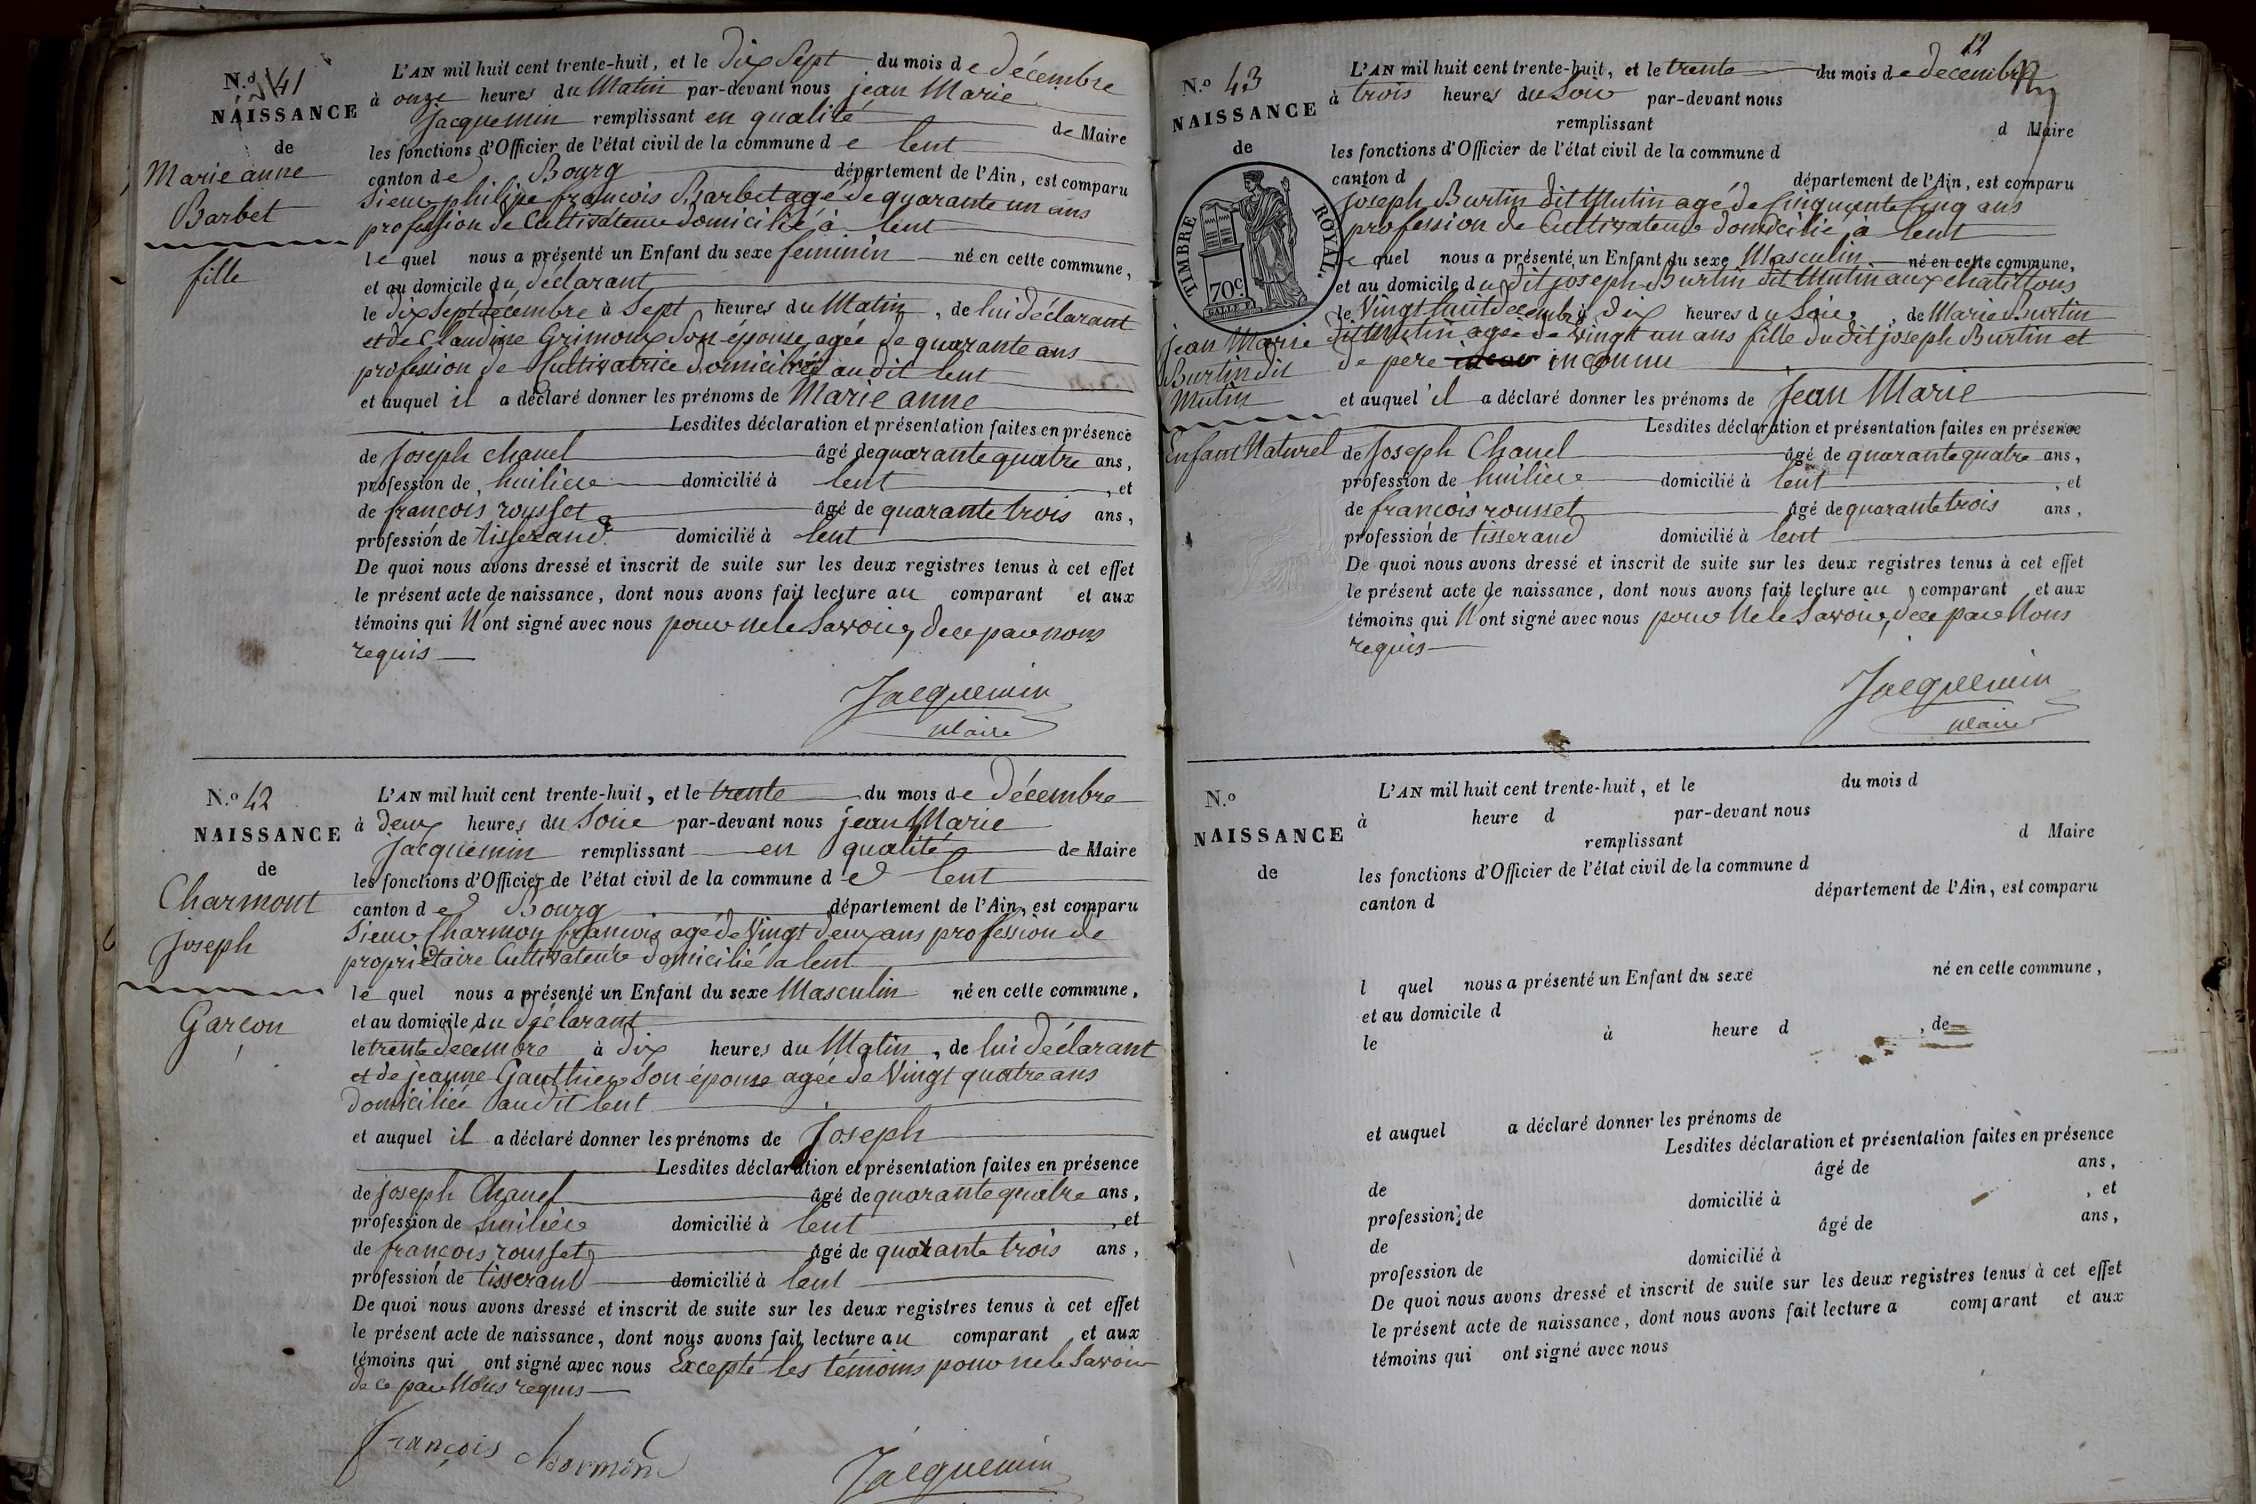 N.º 41
NAISSANCE
de
Marie anne
Barbet
fille
L'AN mil huit cent trente-huit, et le dix Sept du mois de décembre
à onze heures du Matin par-devant nous jean Marie
Jacquemin remplissant en qualité de Maire
les fonctions d'Officier de l'état civil de la commune de lent
canton de Bourg département de l'Ain, est comparu
Sieur philipe françois Barbet agé de quarante un ans
profession de Cultivateur domicilié à lent
le quel nous a présenté un Enfant du sexe feminin né en cette commune,
et au domicile du déclarant
le dix Sept décembre à Sept heures du Matin, de lui déclarant
et de Claudine Grimoux Son épouse agée de quarante ans
profession de Cultivatrice domiciliée audit lent
et auquel il a déclaré donner les prénoms de Marie anne
Lesdites déclaration et présentation faites en présence
de Joseph Chanel âgé de quarante quatre ans,
profession de huiliere domicilié à lent, et
de françois rousset âgé de quarante trois ans,
profession de tisserand domicilié à lent
De quoi nous avons dressé et inscrit de suite sur les deux registres tenus à cet effet
le présent acte de naissance, dont nous avons fait lecture au comparant et aux
témoins qui N'ont signé avec nous pour ne le Savoir, de ce par nous
requis
Jacquemin
Maire
N.º 42
NAISSANCE
de
Charmont
Joseph
Garçon
L'AN mil huit cent trente-huit, et le trente du mois de Décembre
à deux heures du Soir par-devant nous jean Marie
Jacquemin remplissant en qualité de Maire
les fonctions d'Officier de l'état civil de la commune de lent
canton de Bourg département de l'Ain, est comparu
Sieur Charmon françois agé de Vingt deux ans profession de
propriétaire Cultivateur domicilié a lent
le quel nous a présenté un Enfant du sexe Masculin né en cette commune,
et au domicile du déclarant
le trente decembre à dix heures du Matin, de lui déclarant
et de jeanne Gauthier Son épouse agée de Vingt quatre ans
domiciliée audit lent
et auquel il a déclaré donner les prénoms de Joseph
Lesdites déclaration et présentation faites en présence
de joseph Chanel âgé de quarante quatre ans,
profession de huiliere domicilié à lent, et
de françois rousset âgé de quarante trois ans,
profession de tisserand domicilié à lent
De quoi nous avons dressé et inscrit de suite sur les deux registres tenus à cet effet
le présent acte de naissance, dont nous avons fait lecture au comparant et aux
témoins qui ont signé avec nous Excepté les témoins pour ne le Savoir
de ce par Nous requis
François Charmon
Jacquemin
12
N.º 43
NAISSANCE
de
TIMBRE ROYAL.
70c.
jean Marie
Burtin dit
Mutin
Enfant Naturel
L'AN mil huit cent trente-huit, et le trente du mois de decembre
à trois heures du Soir par-devant nous
remplissant d Maire
les fonctions d'Officier de l'état civil de la commune d
canton d département de l'Ain, est comparu
joseph Burtin dit Mutin agé de Cinquante Cinq ans
profession de Cultivateur domicilié à lent
le quel nous a présenté un Enfant du sexe Masculin né en cette commune,
et au domicile du dit joseph Burtin dit Mutin aux chatillons
le Vingt huit decembre à dix heures du Soir, de Marie Burtin
dit Mutin agée de Vingt un ans fille du dit joseph Burtin et
de pere inconnu
et auquel il a déclaré donner les prénoms de Jean Marie
Lesdites déclaration et présentation faites en présence
de Joseph Chanel âgé de quarante quatre ans,
profession de huiliere domicilié à lent, et
de françois rousset âgé de quarante trois ans,
profession de tisserand domicilié à lent
De quoi nous avons dressé et inscrit de suite sur les deux registres tenus à cet effet
le présent acte de naissance, dont nous avons fait lecture au comparant et aux
témoins qui N'ont signé avec nous pour Ne le Savoir, de ce par Nous
requis
Jacquemin
Maire
N.º
NAISSANCE
de
L'AN mil huit cent trente-huit, et le du mois d
à heure d par-devant nous
remplissant d Maire
les fonctions d'Officier de l'état civil de la commune d
canton d département de l'Ain, est comparu
l quel nous a présenté un Enfant du sexe né en cette commune,
et au domicile d
le à heure d , de
et auquel a déclaré donner les prénoms de
Lesdites déclaration et présentation faites en présence
de âgé de ans,
profession de domicilié à , et
de âgé de ans,
profession de domicilié à
De quoi nous avons dressé et inscrit de suite sur les deux registres tenus à cet effet
le présent acte de naissance, dont nous avons fait lecture a comparant et aux
témoins qui ont signé avec nous